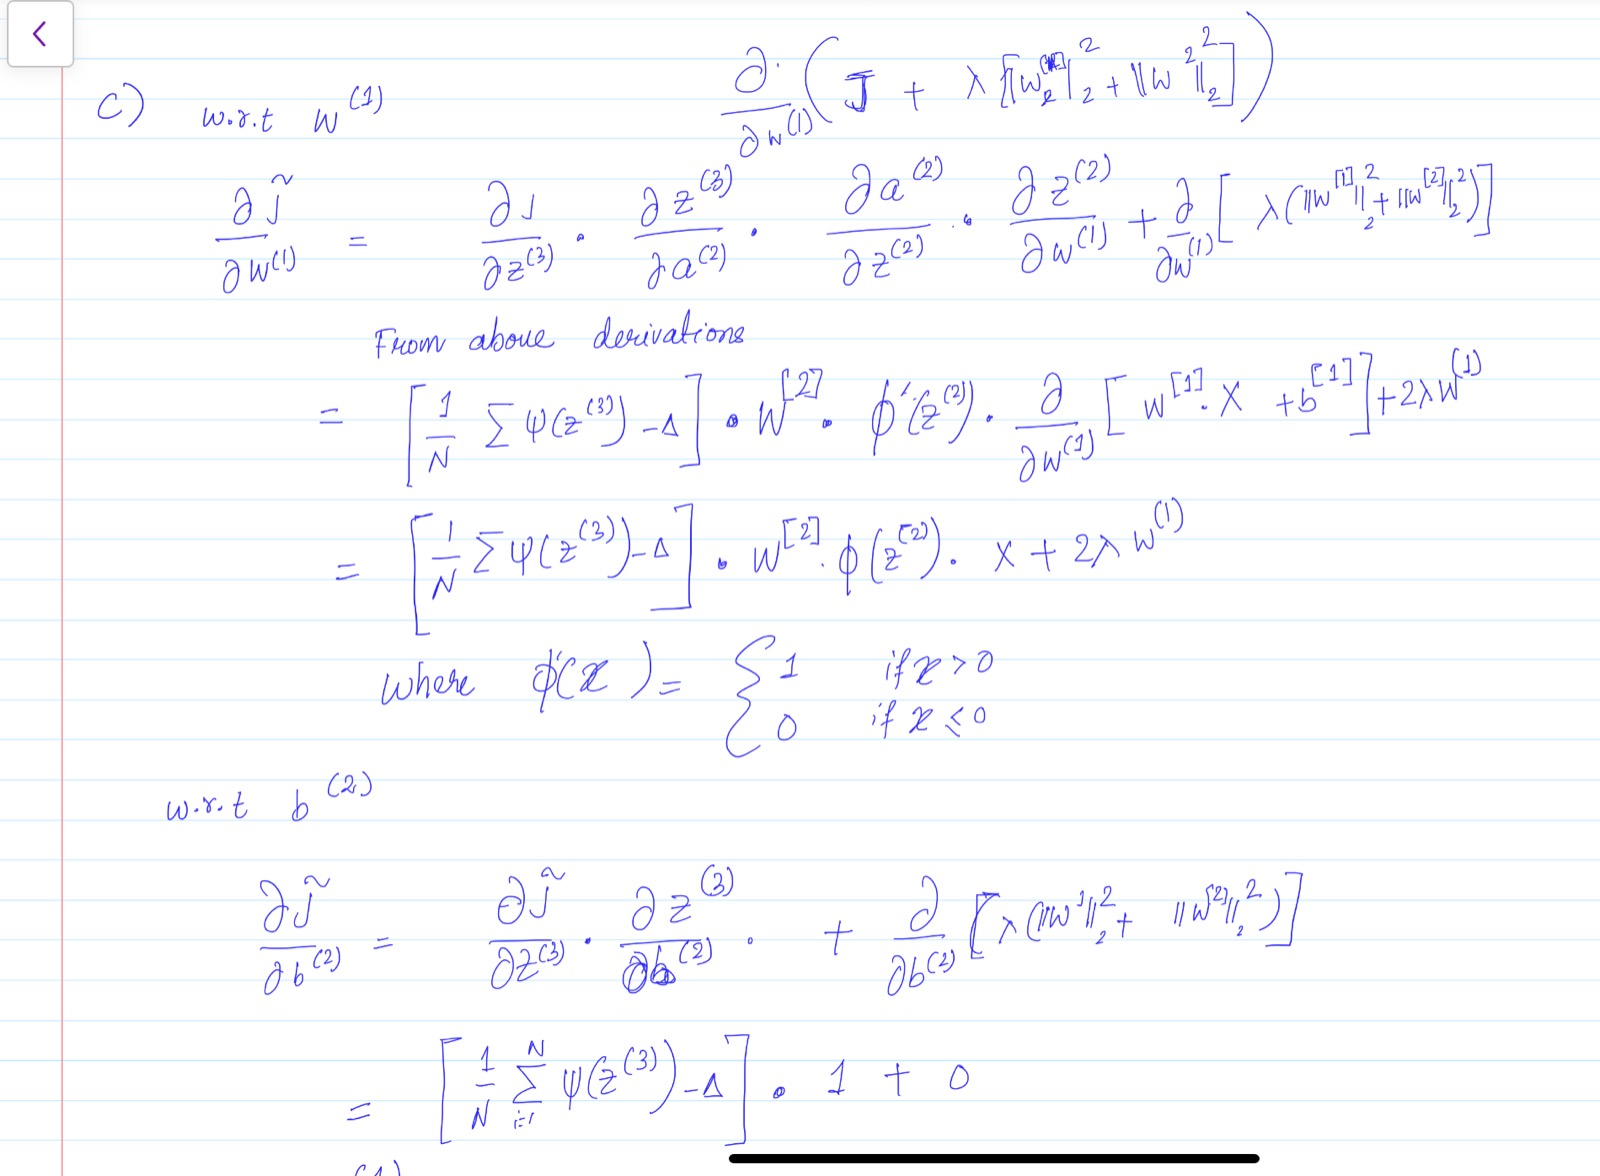 c) w.r.t W^(1) ∂/∂w^(1) ( J + λ [||w^[1]||_2^2 + ||w^2||_2^2] )
∂J̃/∂w^(1) = ∂J/∂z^(3) · ∂z^(3)/∂a^(2) · ∂a^(2)/∂z^(2) · ∂z^(2)/∂w^(1) + ∂/∂w^(1) [ λ(||w^[1]||_2^2 + ||w^[2]||_2^2) ]
From above derivations
= [ 1/N Σ ψ(z^(3)) - Δ ] · W^[2] · ϕ'(z^(2)) · ∂/∂w^(1) [ w^[1] · X + b^[1] ] + 2λw^(1)
= [ 1/N Σ ψ(z^(3)) - Δ ] · w^[2] · ϕ(z^[2]) · X + 2λ w^(1)
where ϕ'(x) = { 1 if x > 0
0 if x ≤ 0
w.r.t b^(2)
∂J̃/∂b^(2) = ∂J̃/∂z^(3) · ∂z^(3)/∂b^(2) · + ∂/∂b^(2) [ λ(||w^1||_2^2 + ||w^[2]||_2^2) ]
= [ 1/N Σ_{i=1}^N ψ(z^(3)) - Δ ] · 1 + 0